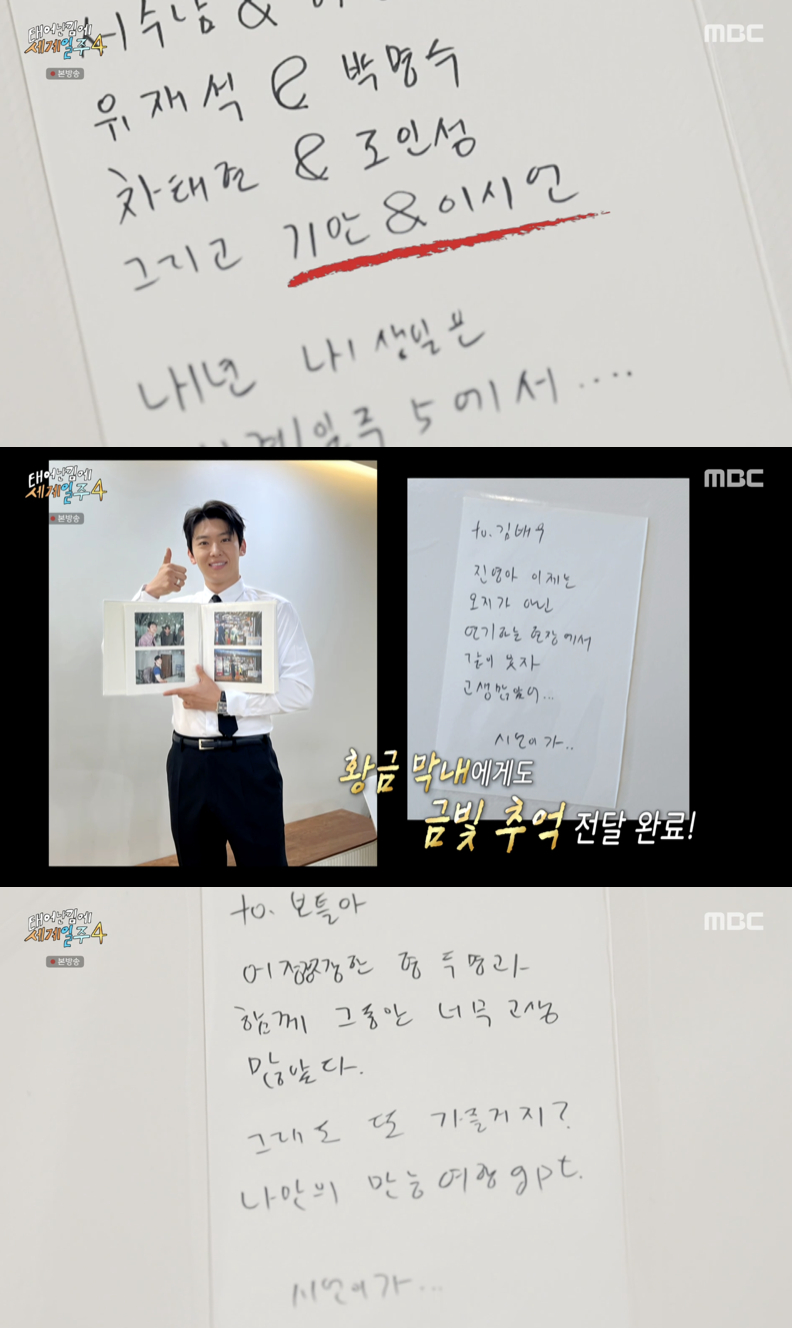 태어난김에
세계일주4
본방송
MBC
유재석 & 박명수
차태현 & 조인성
그리고 기안&이시언
내년 내 생일은
세계일주 5에서....
태어난김에
세계일주4
본방송
MBC
to. 김배우
진영아 이제는
오지가 아닌
연기하는 현장에서
같이 웃자
고생많았어...
시언이가..
황금 막내에게도
금빛 추억 전달 완료!
태어난김에
세계일주4
본방송
MBC
to. 보틀아
어정쩡한 형 두명과
함께 그동안 너무 고생
많았다.
그래도 또 가줄거지?
나만의 만능여행gpt.
시언이가...